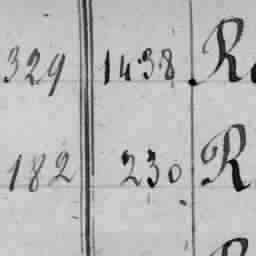 329 1438 R
182 230 R